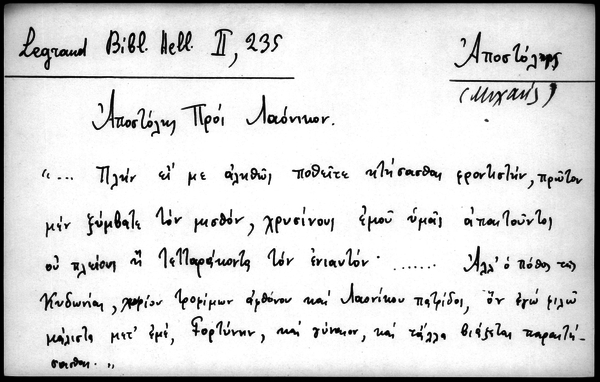 Legrand Bibl. Hell. II, 235
Ἀποστόλης
(Μιχαήλ)
Ἀποστόλης Πρὸς Λαόνικον.
"... Πλὴν εἴ με ἀληθῶς ποθεῖτε κτήσασθαι φροντιστήν, πρῶτον
μὲν ξύμβατε τὸν μισθόν, χρυσίνους ἐμοῦ ὑμᾶς ἀπαιτοῦντος
οὐ πλείους ἢ τετταράκοντα τὸν ἐνιαυτόν· ...... Ἀλλ' ὁ πόθος τῆς
Κυδωνίας, χωρίον τροφίμων ἀφθόνου καὶ Λαονίκου πατρίδος, ὃν ἐγὼ φιλῶ
μάλιστα μετ' ἐμέ, Φορτύνην, καὶ γύναιον, καὶ τἄλλα βιάζεται παραιτή-
σασθαι. "